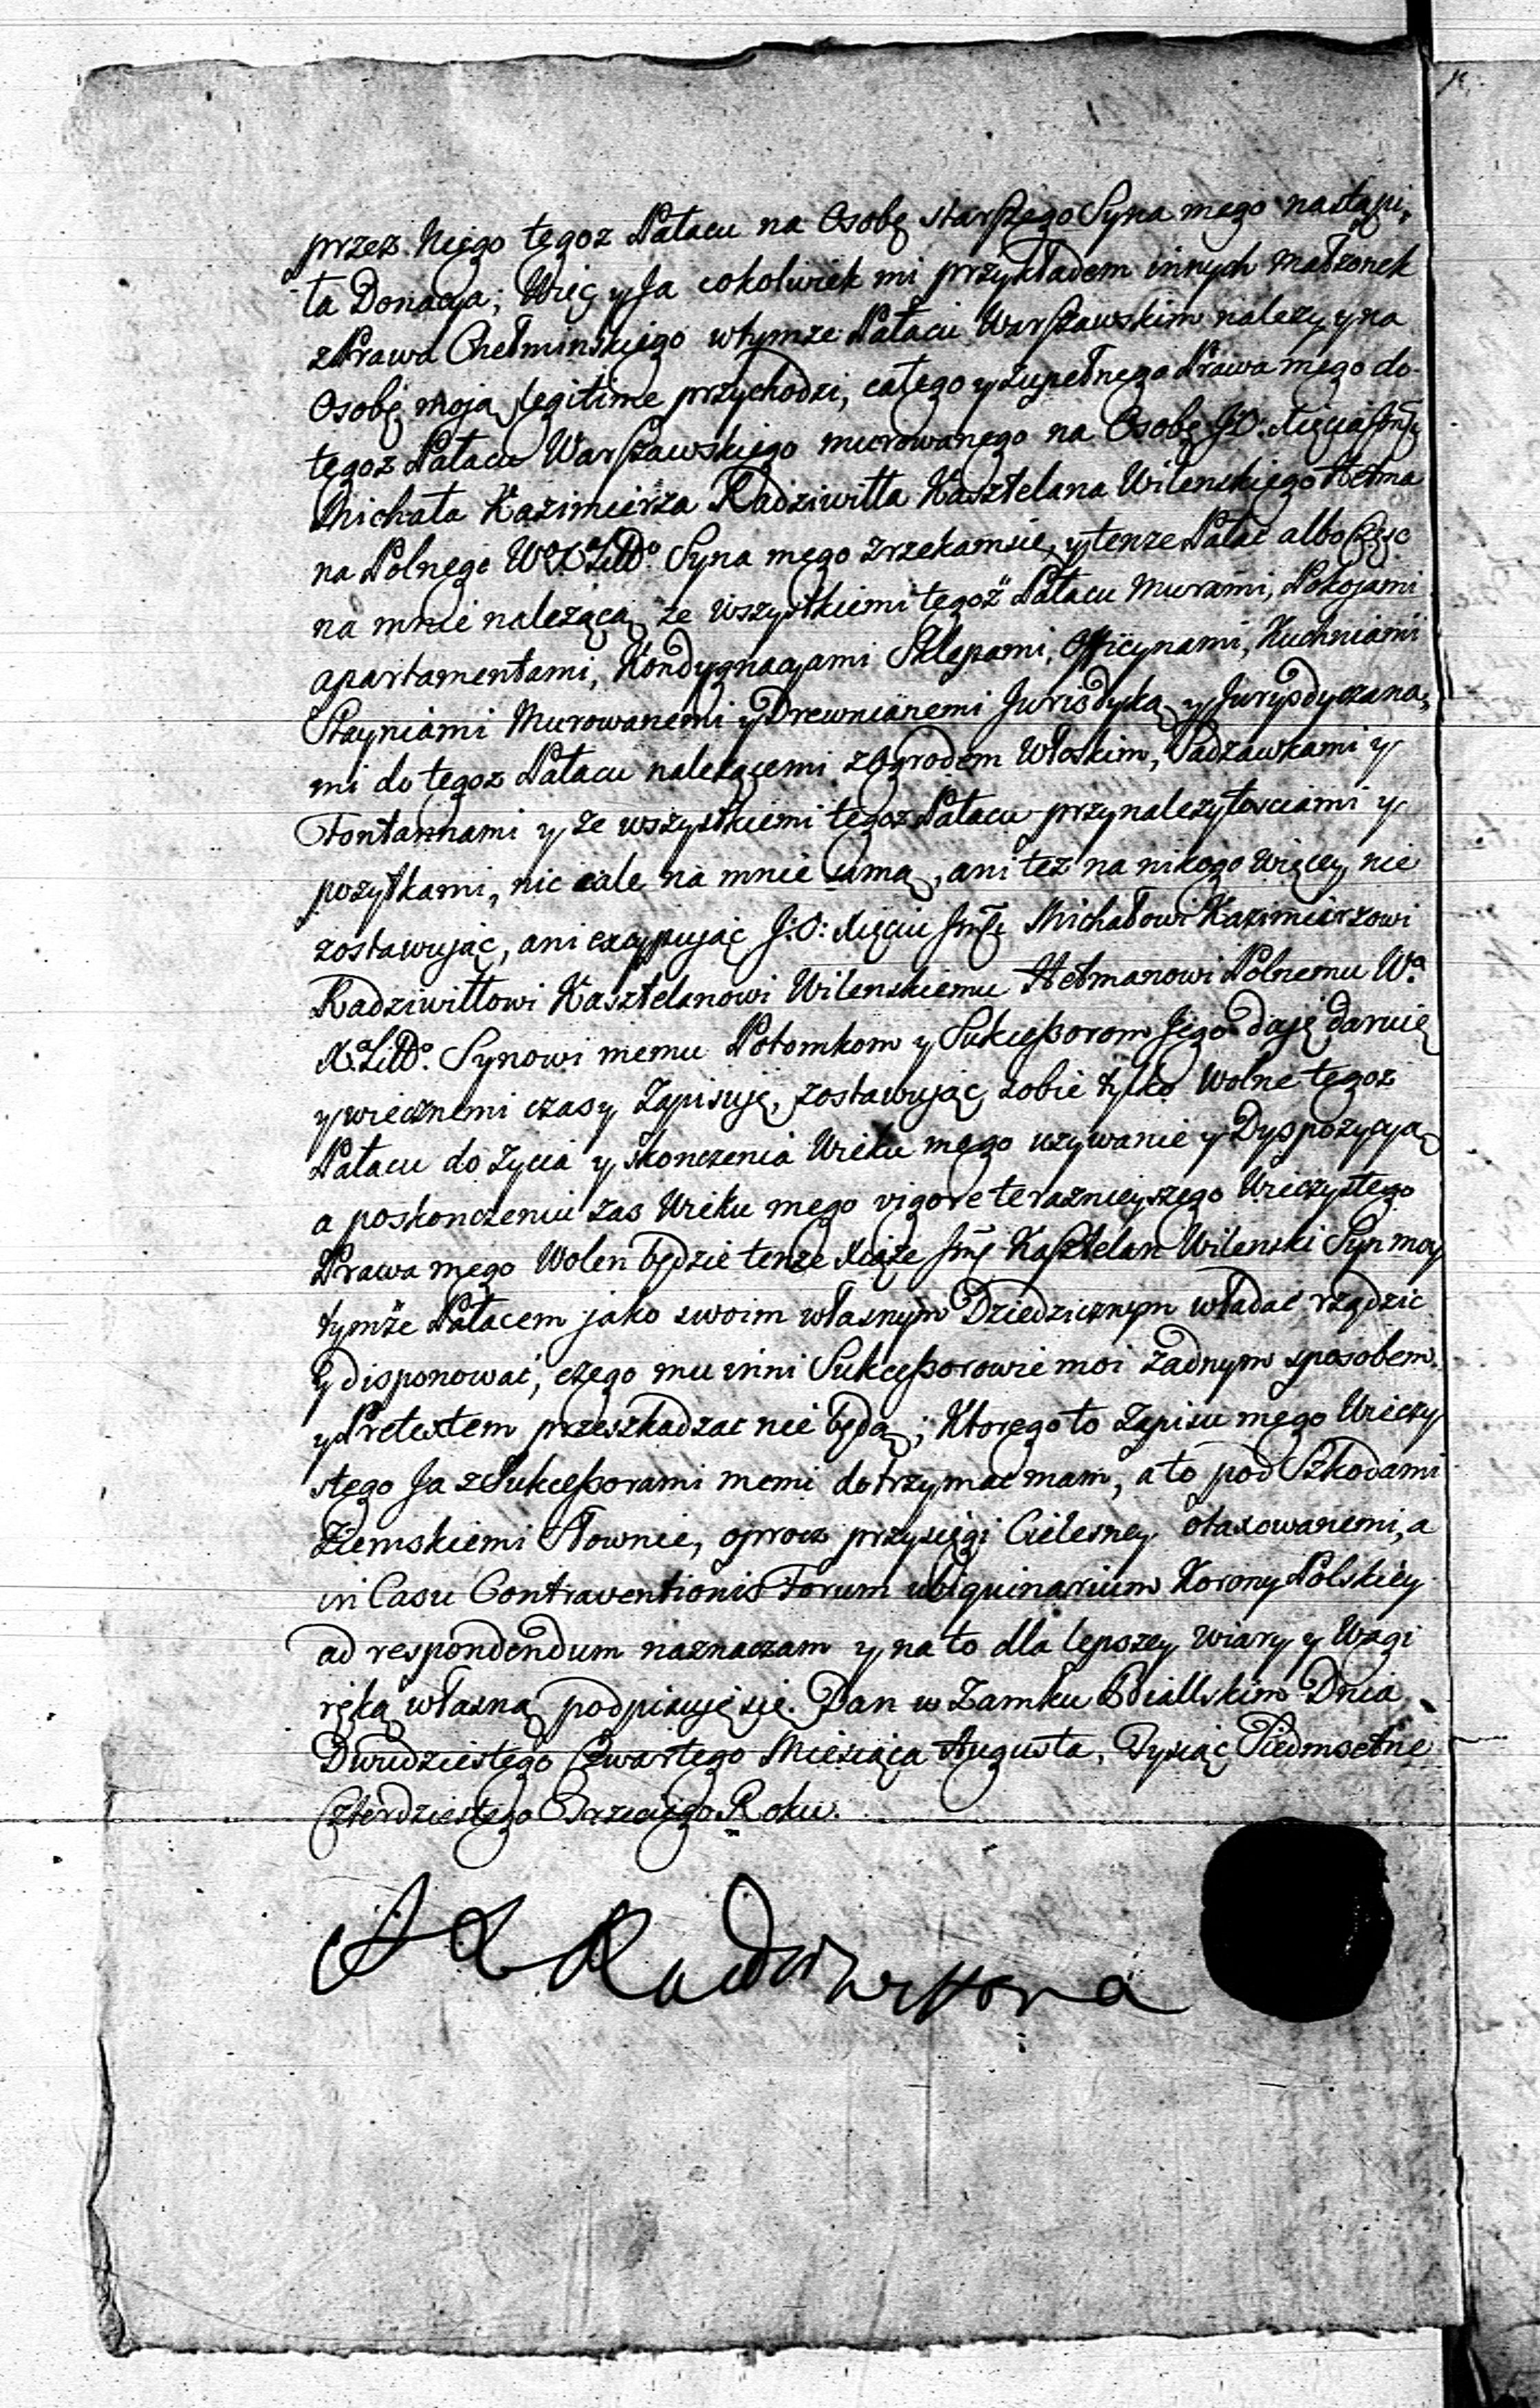 przez Niego tegoz Pałacu na Osobę starszego Syna mego nastąpi,
ła Donacya; Więc y Ja cokolwiek mi przykładem innych małzonek
z Prawa Chełminskiego wtymze Pałacu Warszawskim nalezy y na
Osobę moją legitime przychodzi, całego y zupełnego Prawa mego do
tegoz Pałacu Warszawskiego murowanego na Osobę J:O: Xięcia Jmci
Michała Kazimierza Radziwiłła Kasztelana Wilenskiego Hetma
na Polnego W.X.Litto Syna mego zrzekamsię, y tenze Pałac albo Częsc
na mnie nalezącą ze wszystkiemi tegoz Pałacu Murami, Pokojami
apartamentami, Kondygnacyami Sklepami, Officynami, Kuchniami
Stayniami Murowanemi y Drewnianemi Jurisdyką y Jurysdyczana,
mi do tegoz Pałacu nalezącemi z Ogrodem Włoskim, Sadzawkami y
Fontannami y ze wszystkiemi tegoz Pałacu przynalezytosciami y
pozytkami, nic cale na mnie samą, ani tez na nikogo więcey nie
zostawując, ani excypując J:O: Xięciu Jmci Michałowi Kazimierzowi
Radziwiłłowi Kasztelanowi Wilenskiemu Hetmanowi Polnemu Wo
X.Litto. Synowi memu Potomkom y Sukcessorom Jego daję daruię
y wiecznemi czasy Zapisuję, zostawując sobie tylko Wolne tegoz
Pałacu do zycia y skonczenia Wieku mego uzywanie y Dyspozycyą
a poskonczeniu zas Wieku mego vigore teraznieyszego Wieczystego
Prawa mego Wolen będzie tenze Xiąze Jmć Kasztelan Wilenski Syn moy
tymże Pałacem jako swoim własnym Dziedzicznym władac rządzic
y disponować, czego mu inni Sukcessorowie moi zadnym sposobem
y Pretextem przeszkadzac nie będą; Ktorego to Zapisu mego Wieczy
stego Ja z Sukcessorami memi dotrzymac mam, a to pod Szkodami
Ziemskiemi Słownie, oprocz przysięgi Cielesney otaxowanemi, a
in Casu Contraventionis Forum ubiquinarium Korony Polskiey
ad respondendum naznaczam y na to dla lepszey wiary y Wagi
ręką własną podpisuję się. Dan w Zamku Biallskim Dnia
Dwudziestego Czwartego Miesiąca Augusta, Tysiąc Siedmsetne
Czterdziestego Trzeciego Roku.
Radziwiłłowa